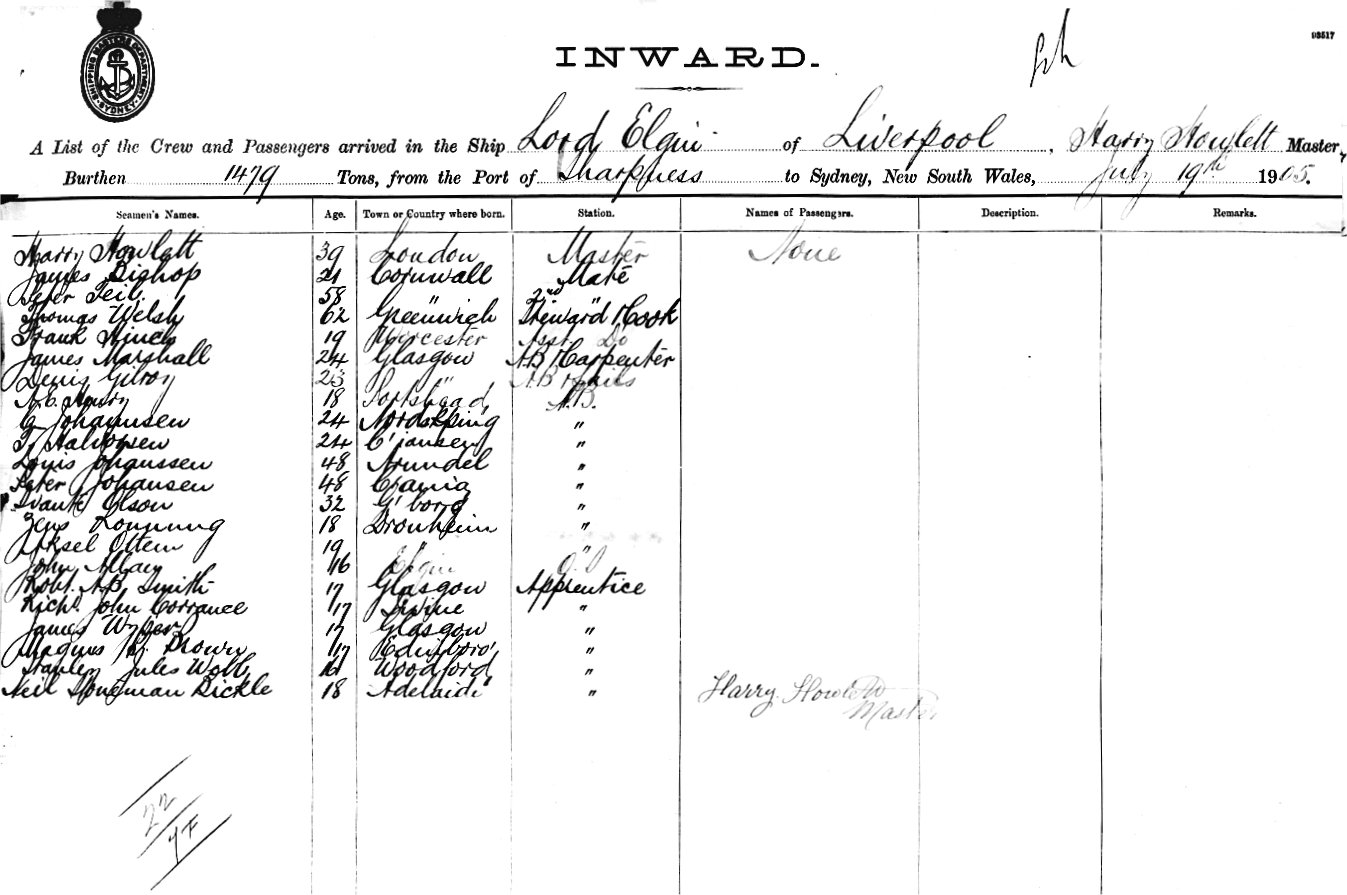 SHIPPING MASTER'S DEPARTMENT SYDNEY
93517
INWARD.
A List of the Crew and Passengers arrived in the Ship Lord Elgin of Liverpool, Harry Howlett Master,
Burthen 1479 Tons, from the Port of Sharpness to Sydney, New South Wales, July 19th 1905.
Seamen's Names. Age. Town or Country where born. Station. Names of Passengers. Description. Remarks.
Harry Howlett 39 London Master None
James Bishop 21 Cornwall Mate
Peter 58 " 2nd "
Thomas Welsh 62 Greenwich Steward & Cook
Frank 19 Worcester Asst Do
James Marshall 24 Glasgow AB & Carpenter
Denis Gilroy 23 " AB & Sails
A.C. Henry 18 Portishead A.B.
G Johannsen 24 "
T. Halvorsen 24 "
Louis Johanssen 48 Arundel "
Peter Johansen 48 "
Svante Olson 32 G'borg "
Jens 18 Dronheim "
Aksel Ottem 19 " "
John Allan 16 Elgin O.S
Robt. A.B. Smith 17 Glasgow Apprentice
Richd. John Corrance 17 Irvine "
James 17 Glasgow "
Magnus Brown 17 Edinboro' "
Stanley Jules Woodford "
Neil Stoneman Bickle 18 Adelaide "
Harry Howlett
Master
22